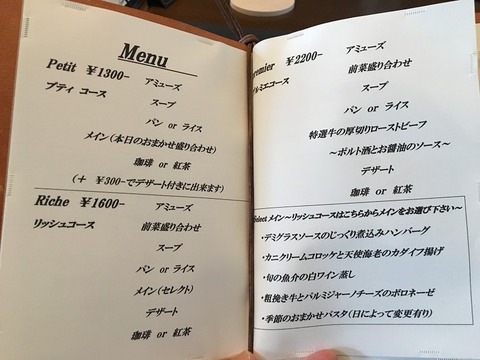 Menu
Petit ￥1300-
アミューズ
プティ コース
スープ
パン or ライス
メイン(本日のおまかせ盛り合わせ)
珈琲 or 紅茶
(＋ ￥300-でデザート付きに出来ます)
Riche ￥1600-
アミューズ
リッシュコース
前菜盛り合わせ
スープ
パン or ライス
メイン(セレクト)
デザート
珈琲 or 紅茶
remier ￥2200-
アミューズ
ルミエコース
前菜盛り合わせ
スープ
パン or ライス
特選牛の厚切りローストビーフ
～ポルト酒とお醤油のソース～
デザート
珈琲 or 紅茶
Select メイン～リッシュコースはこちらからメインをお選び下さい～
・デミグラスソースのじっくり煮込みハンバーグ
・カニクリームコロッケと天使海老のカダイフ揚げ
・旬の魚介の白ワイン蒸し
・粗挽き牛とパルミジャーノチーズのボロネーゼ
・季節のおまかせパスタ(日によって変更有り)